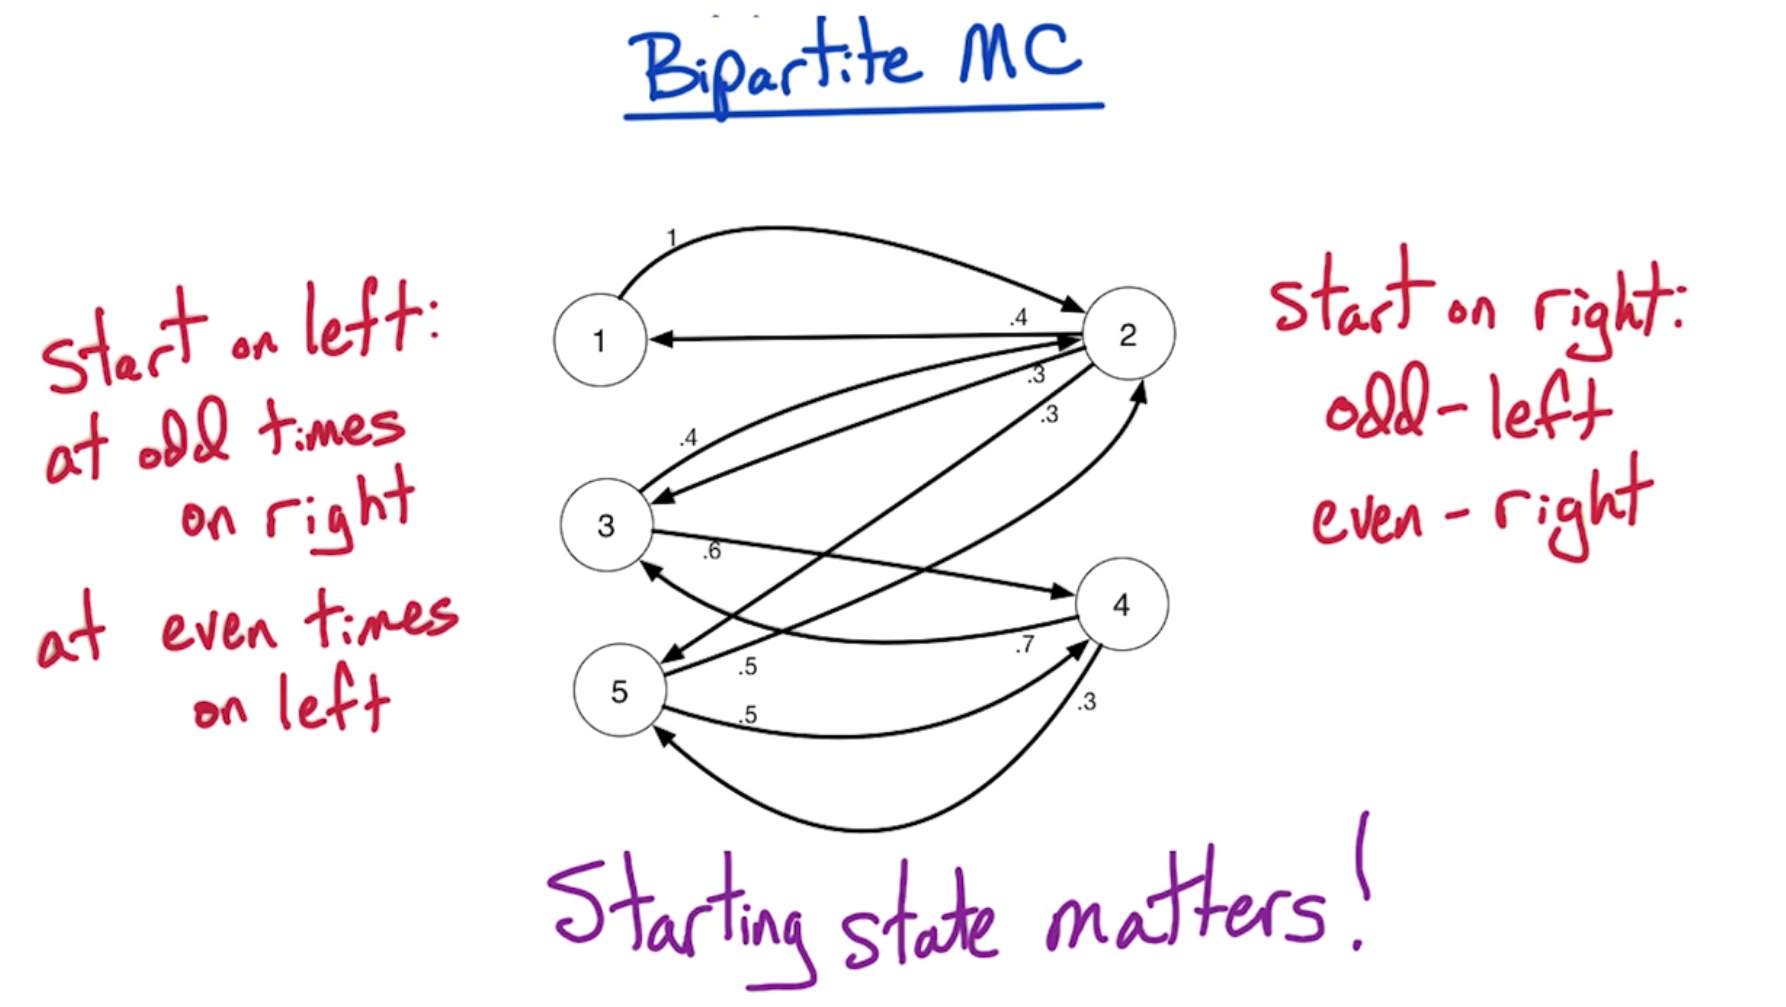 Bipartite MC
Start on left:
at odd times
on right
at even times
on left
1
1
.4
2
.3
.3
.4
3
.6
4
.7
5
.5
.5
.3
Start on right:
odd - left
even - right
Starting state matters!